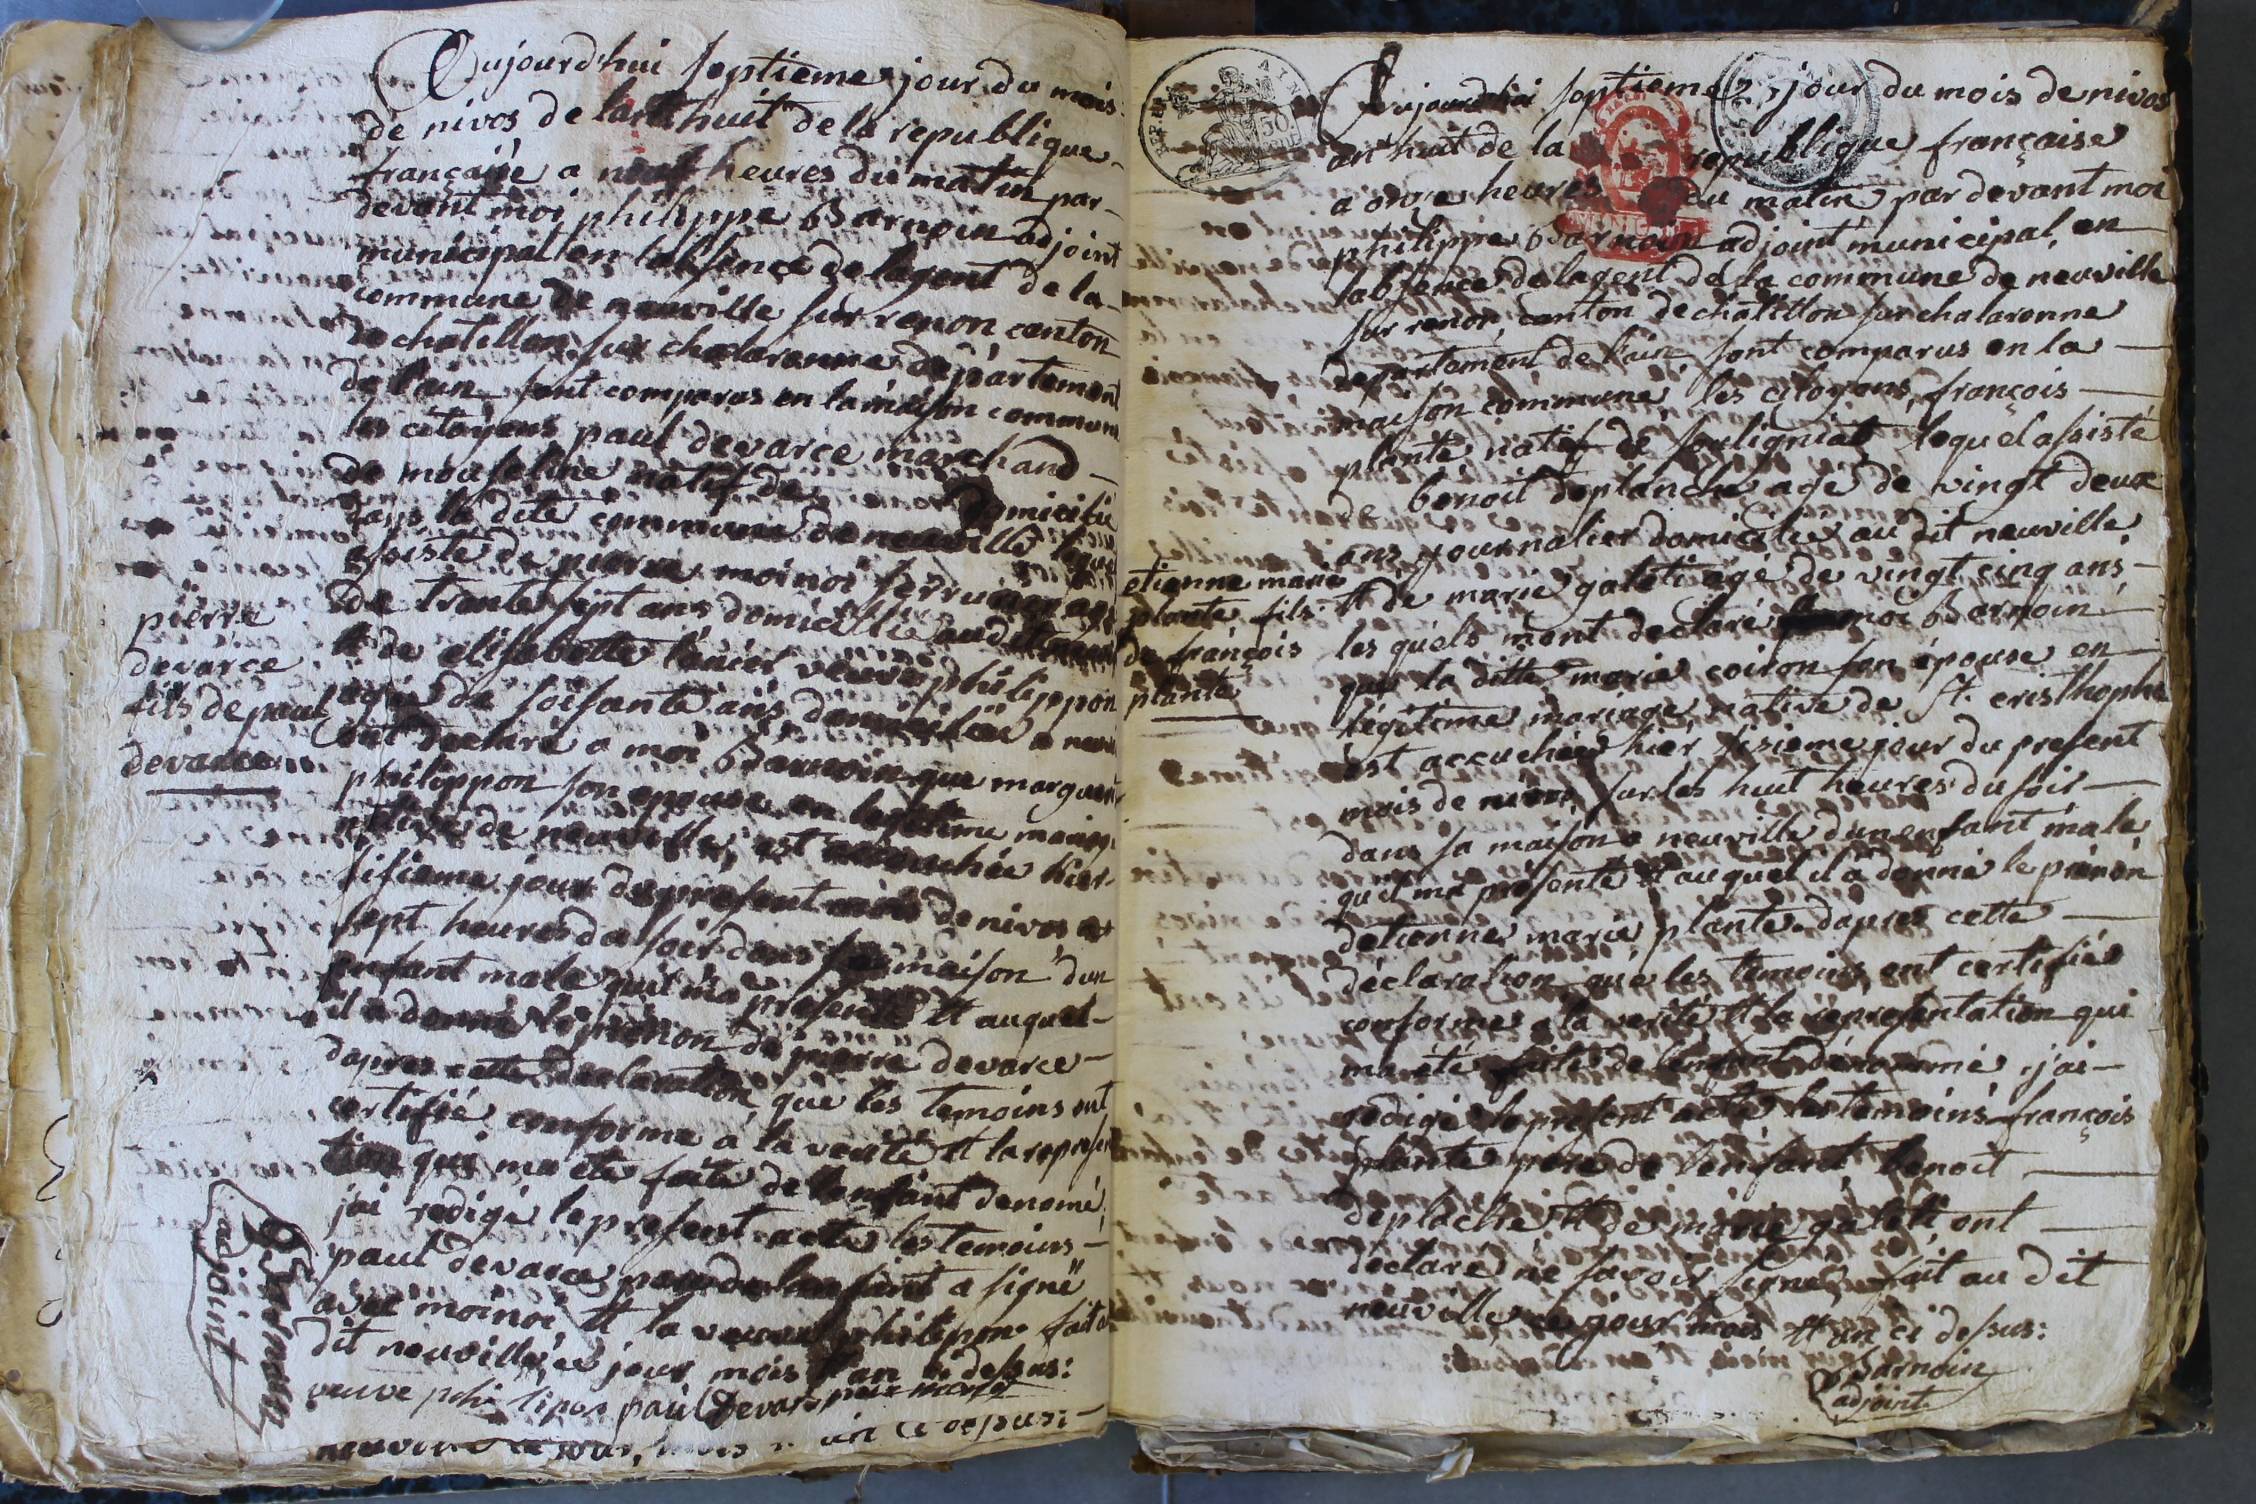 Aujourd'hui septieme jour du mois
de nivos de lant huit de la republique
française a neuf heures du matin par-
devant moi philippe Barnoin adjoint
municipal en labsence de lagent de la-
commune de neuville sur renon canton
de chatillon sur chalaronne departement
de l'ain sont comparus en la maison commune
les citoyens paul devarce marchand-
de mouseline natif de domicilié
dans la dite commune de neuville lequel
assisté de pierre moinoi serrurier agé
de trante sept ans domicillié audit neuville
et de elisabette veuve philippon
agée de soisante ans domiciliée a neuville
ont declaré a moi Barnoin que marguerite
philippon son epouse en legitime mariage
native de neuville, est accouchée hier
sisieme jour du present mois de nivos a
sept heures du soir dans sa maison d'un
enfant male qu'il ma presenté et auquel-
il a donné le prenon de pierre devarce-
dapres cette declaration que les temoins ont
certifié conforme a la verité et la represen
tion qui ma eté faite de lenfant denomé,
jai redigé le present acte les temoins-
paul devarce pere de lenfant a signé
avec moinoi, et la veuve philippon fait au
dit neuville, ce jour mois et an ci dessus:
veuve philipon paul Devars
neuville ce jour, mois et an ci dessus:-
pierre
devarce
fils de paul
devarce
Barnoin
adjoint
Aujourdhui septieme jour du mois de nivos
an huit de la republique française
a onze heures du matin par devant moi
philippe Barnoin adjoint municipal, en
labsence de lagent de la commune de neuville
sur renon, canton de chatillon sur chalaronne
departement de l'ain sont comparus en la-
maison commune, les citoyens, françois-
plante natif de souligniat lequel assisté
de benoit deplanche agé de vingt deux
ans journalier domicilié au dit neuville,
et de marie galeti agé de vingt cinq ans-
les quels m'ont declaré moi Barnoin-
que la ditte marie coiron son épouse en-
légitime mariage native de St. cristhophe
est accuchée hier sisieme jour du present
mois de nivos, sur les huit heures du soir-
dans sa maison a neuville d'un enfant mâle
qu'il ma présenté et au quel il a donné le prénon
detienne marie plante. dapres cette-
déclaration que les temoins ont certifiés
conforme a la verité et la representation qui
ma été faite de lenfant dénommé, j'ai-
redigé le present acte les temoins françois
plante pere de lenfant benoit-
deplache et de marie galeti, ont-
declaré ne savoir signer, fait au dit
neuville ce jour mois et an ci dessus:
Barnoin
adjoint
etienne marie
plante fils
de françois
plante